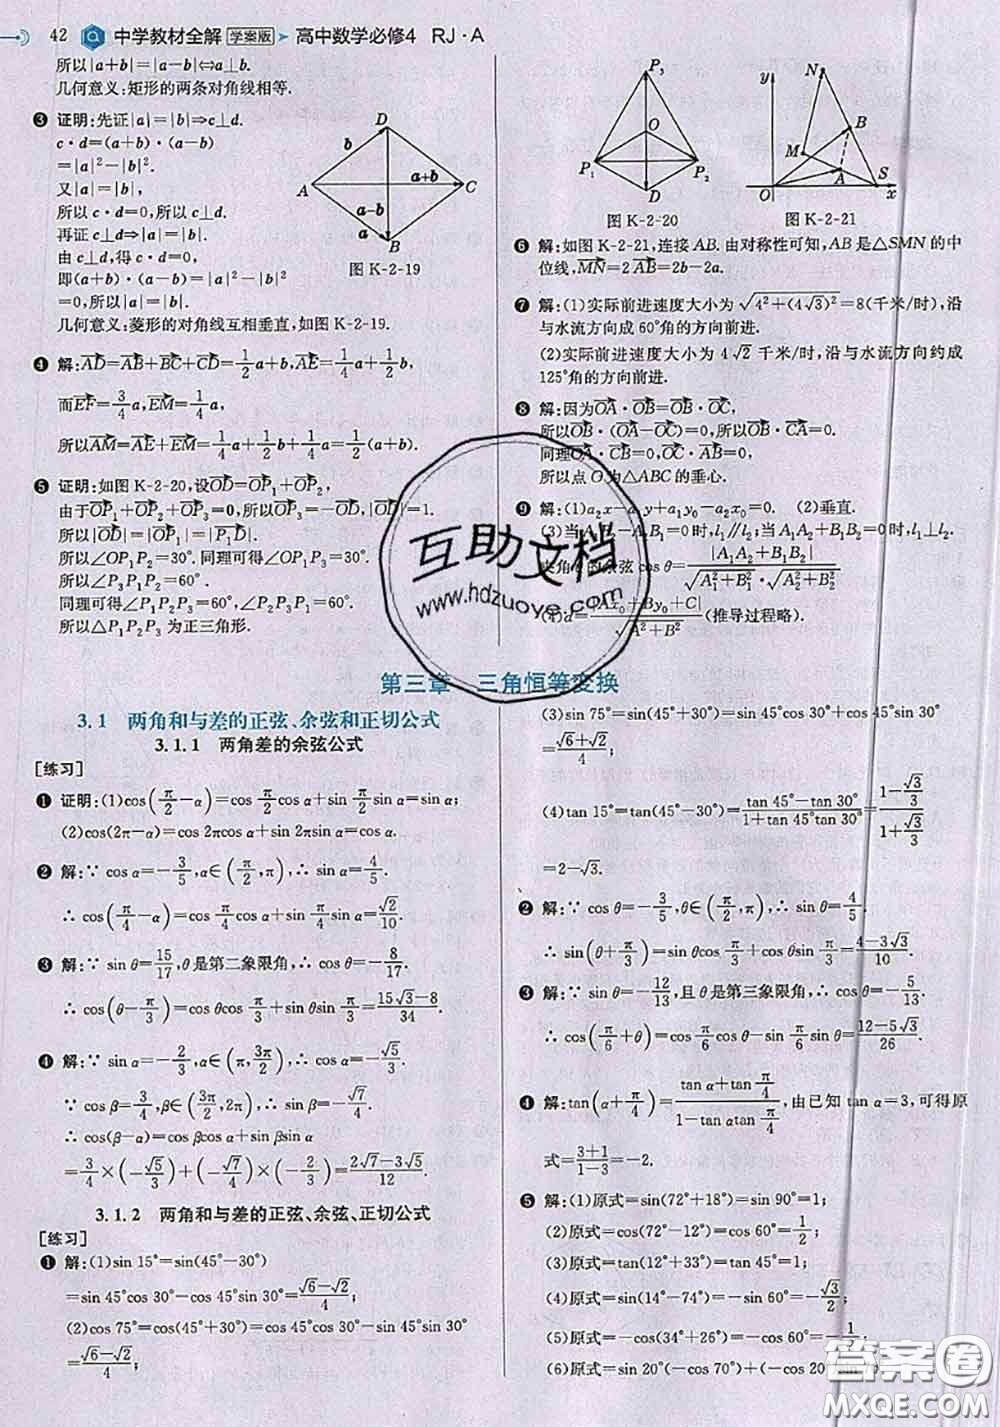 42 中学教材全解 学案版 高中数学必修4 RJ·A
所以|a+b|=|a-b|⇔a⊥b.
几何意义:矩形的两条对角线相等.
❸ 证明:先证|a|=|b|⇒c⊥d.
c·d=(a+b)·(a-b)
=|a|²-|b|².
又|a|=|b|,
所以 c·d=0,所以 c⊥d.
再证 c⊥d⇒|a|=|b|.
由 c⊥d,得 c·d=0,
即(a+b)·(a-b)=|a|²-|b|²=0,
所以|a|=|b|.
几何意义:菱形的对角线互相垂直,如图 K-2-19.
D
A
a+b
C
a-b
a
B
图 K-2-19
❹ 解:AD=AB+BC+CD=1/2 a+b+1/4 a+1/4 b,
而EF=3/4 a,EM=1/4 a,
所以AM=AE+EM=1/4 a+1/2 b+1/4 a=1/2(a+b).
❺ 证明:如图 K-2-20,设OD=OP₁+OP₂,
由于OP₁+OP₂+OP₃=0,所以OP₃=-OD,|OD|=1,
所以|OD|=|OP₁|=|P₁D|.
所以∠OP₁P₂=30°.同理可得∠OP₁P₃=30°.
所以∠P₃P₁P₂=60°.
同理可得∠P₁P₂P₃=60°,∠P₂P₃P₁=60°,
所以△P₁P₂P₃为正三角形.
P₃
O
P₁
P₂
D
图 K-2-20
y
N
B
M
A
O
S
x
图 K-2-21
❻ 解:如图 K-2-21,连接 AB.由对称性可知,AB 是△SMN的中
位线,MN=2AB=2b-2a.
❼ 解:(1)实际前进速度大小为√(4²+(4√3)²)=8(千米/时),沿
与水流方向成60°角的方向前进.
(2)实际前进速度大小为 4√2 千米/时,沿与水流方向约成
125°角的方向前进.
❽ 解:因为OA·OB=OB·OC,
所以OB·(OA-OC)=0,所以OB·CA=0.
同理OA·CB=0,OC·AB=0,
所以点 O 为△ABC 的垂心.
❾ 解:(1)a₂x-a₁y+a₁y₀-a₂x₀=0. (2)垂直.
(3)当 A₁B₂-A₂B₁=0时,l₁∥l₂;当 A₁A₂+B₁B₂=0时,l₁⊥l₂.
夹角θ的余弦 cos θ=|A₁A₂+B₁B₂|/(√(A₁²+B₁²)·√(A₂²+B₂²)).
(4)d=|Ax₀+By₀+C|/√(A²+B²)(推导过程略)
互助文档
www.hdzuoye.com
第三章 三角恒等变换
3.1 两角和与差的正弦、余弦和正切公式
3.1.1 两角差的余弦公式
[练习]
❶ 证明:(1)cos(π/2-α)=cos π/2 cos α+sin π/2 sin α=sin α;
(2)cos(2π-α)=cos 2πcos α+sin 2πsin α=cos α.
❷ 解:∵ cos α=-3/5,α∈(π/2,π),∴ sin α=4/5.
∴ cos(π/4-α)=cos π/4 cos α+sin π/4 sin α=√2/10.
❸ 解:∵ sin θ=15/17,θ是第二象限角,∴ cos θ=-8/17.
∴ cos(θ-π/3)=cos θcos π/3+sin θsin π/3=(15√3-8)/34.
❹ 解:∵ sin α=-2/3,α∈(π,3π/2),∴ cos α=-√5/3.
∵ cos β=3/4,β∈(3π/2,2π),∴ sin β=-√7/4.
∴ cos(β-α)=cos βcos α+sin βsin α
=3/4×(-√5/3)+(-√7/4)×(-2/3)=(2√7-3√5)/12.
3.1.2 两角和与差的正弦、余弦、正切公式
[练习]
❶ 解:(1)sin 15°=sin(45°-30°)
=sin 45°cos 30°-cos 45°sin 30°=(√6-√2)/4;
(2)cos 75°=cos(45°+30°)=cos 45°cos 30°-sin 45°sin 30°
=(√6-√2)/4;
(3)sin 75°=sin(45°+30°)=sin 45°cos 30°+cos 45°sin 30°
=(√6+√2)/4;
(4)tan 15°=tan(45°-30°)=(tan 45°-tan 30°)/(1+tan 45°tan 30°)=(1-√3/3)/(1+√3/3)
=2-√3.
❷ 解:∵ cos θ=-3/5,θ∈(π/2,π),∴ sin θ=4/5.
∴ sin(θ+π/3)=sin θcos π/3+cos θsin π/3=(4-3√3)/10.
❸ 解:∵ sin θ=-12/13,且 θ是第三象限角,∴ cos θ=-5/13.
∴ cos(π/6+θ)=cos π/6 cos θ-sin π/6 sin θ=(12-5√3)/26.
❹ 解:tan(α+π/4)=(tan α+tan π/4)/(1-tan αtan π/4),由已知 tan α=3,可得原
式=(3+1)/(1-3)=-2.
❺ 解:(1)原式=sin(72°+18°)=sin 90°=1;
(2)原式=cos(72°-12°)=cos 60°=1/2;
(3)原式=tan(12°+33°)=tan 45°=1;
(4)原式=sin(14°-74°)=-sin 60°=-√3/2;
(5)原式=-cos(34°+26°)=-cos 60°=-1/2;
(6)原式=sin 20°(-cos 70°)+(-cos 20°)sin
答案圈
MXQE.COM